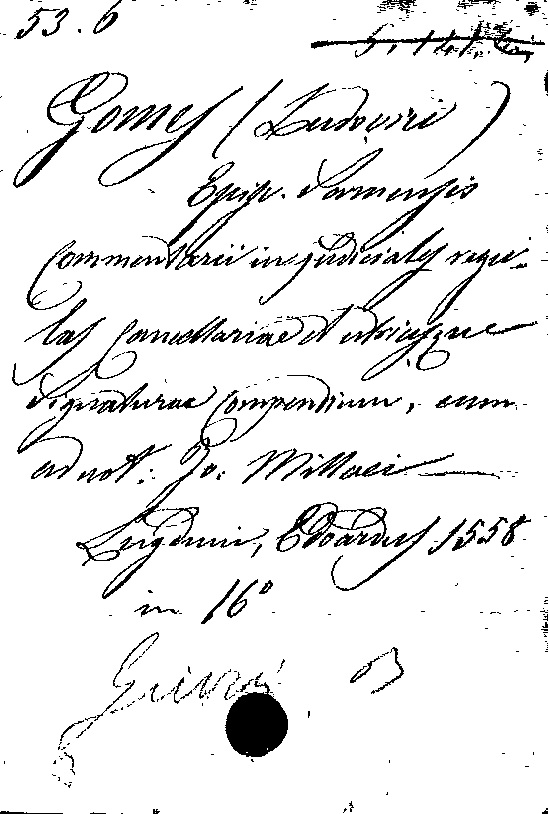 53.6
5.141.
Gomes (Ludovici)
Episc. Sarnensis
Commentarii in judiciales regu-
las Cancellariae et utriusque
Signaturae Compendium, cum
adnot: Jo. Millaei
Lugduni, Edoardus 1558
in 16°